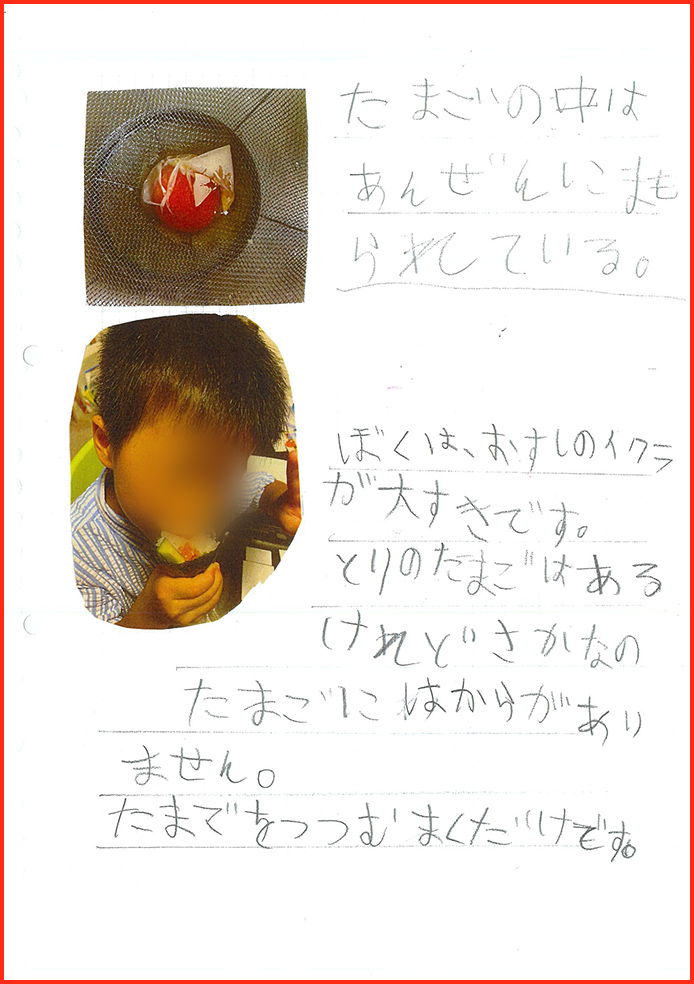 たまごの中は
あんぜんにまも
られている。
ぼくは、おすしのイクラ
が大すきです。
とりのたまごはある
けれどさかなの
たまごにはからがあり
ません。
たまでをつつむまくだけです。